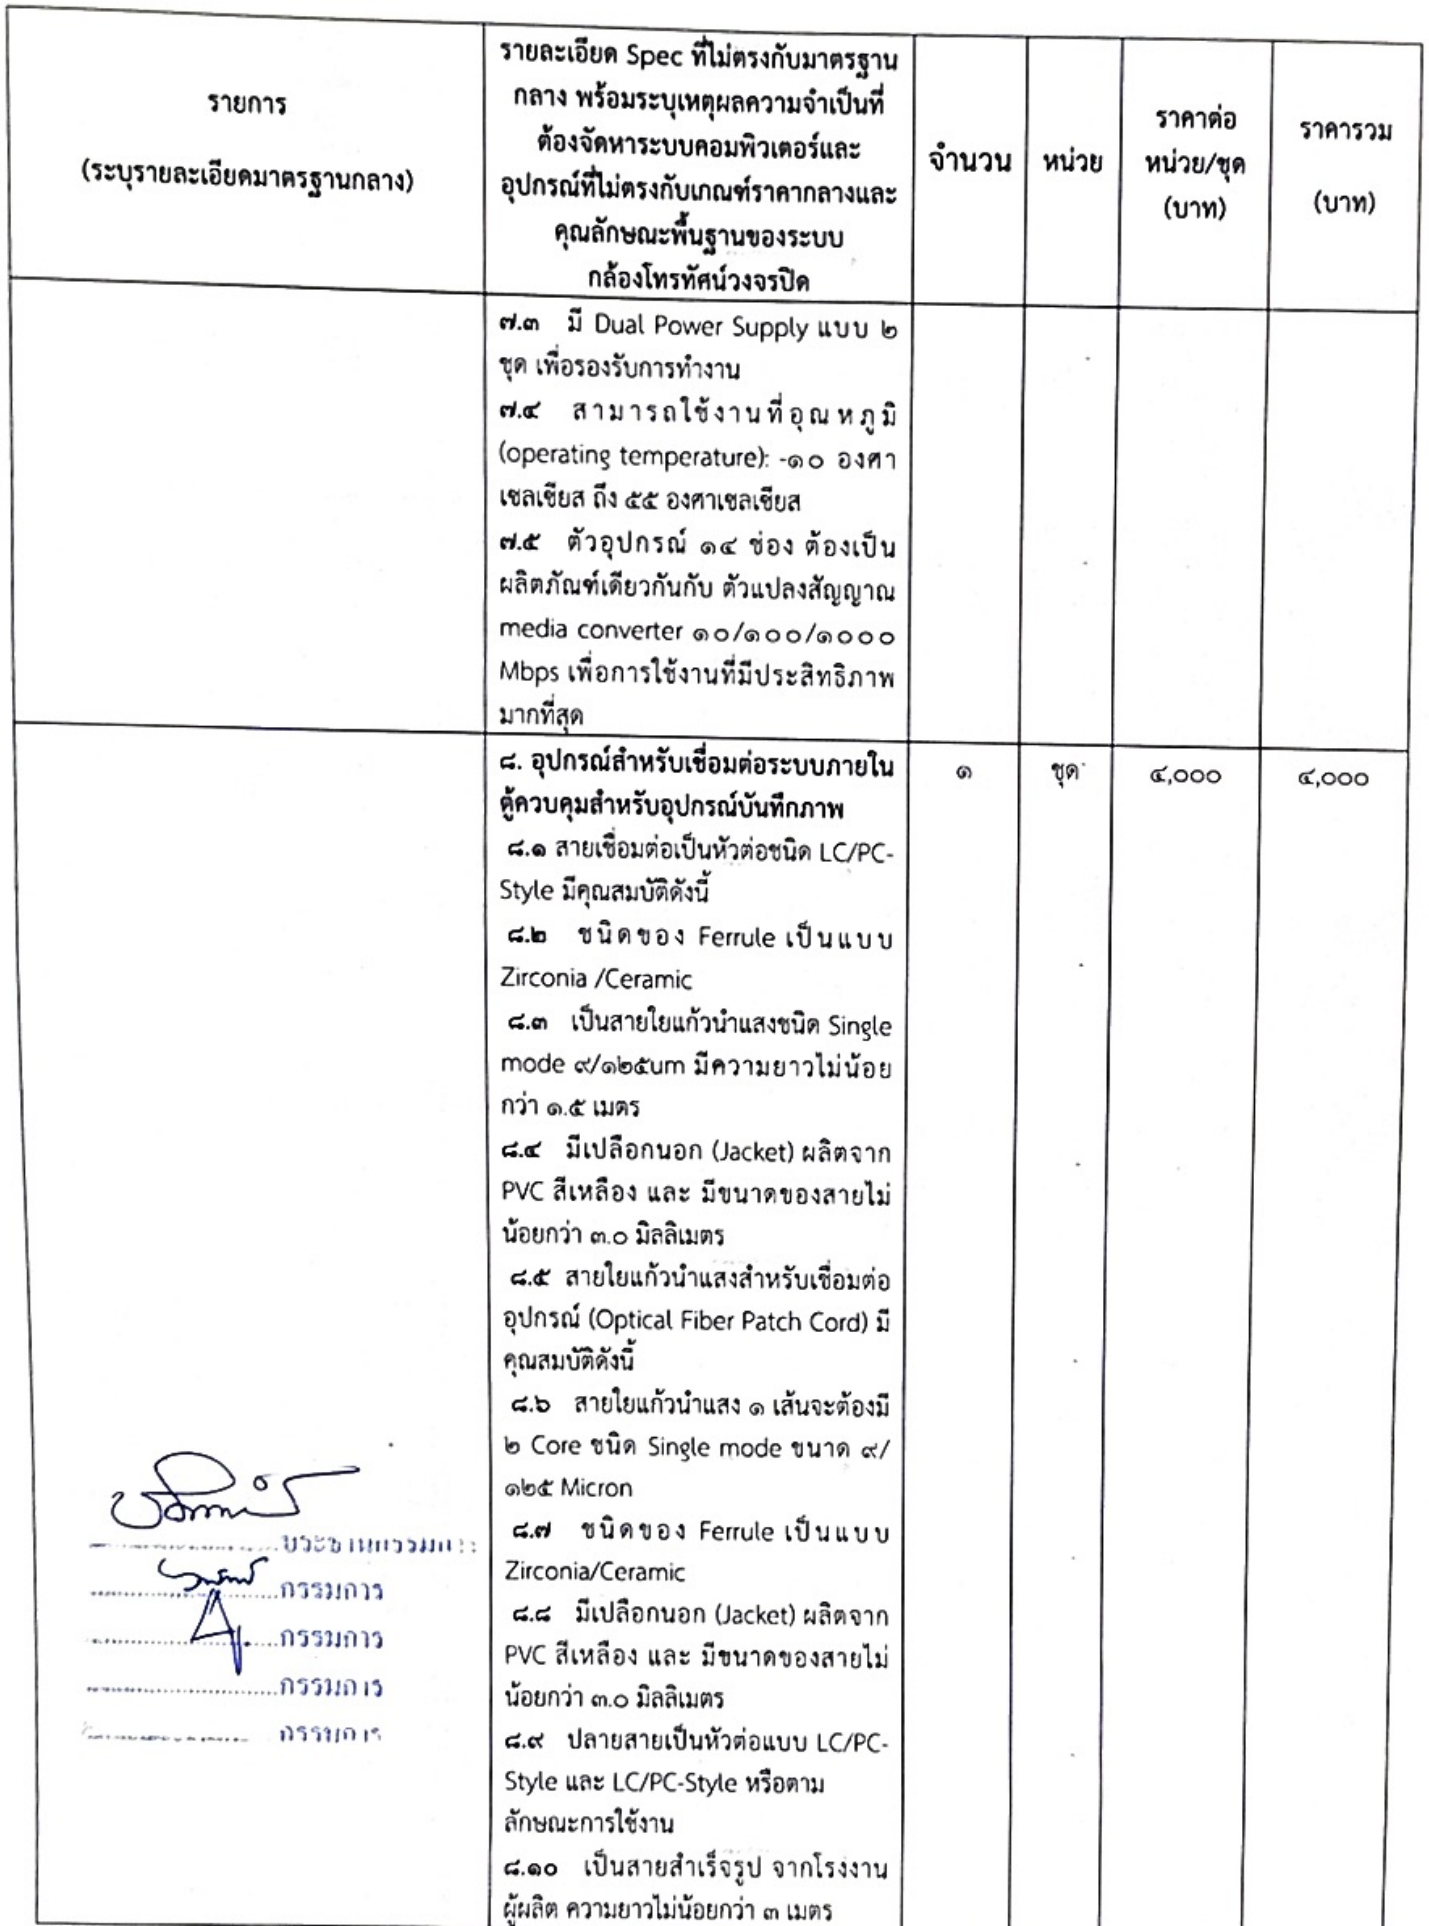 รายการ
(ระบุรายละเอียดมาตรฐานกลาง)
รายละเอียด Spec ที่ไม่ตรงกับมาตรฐาน
กลาง พร้อมระบุเหตุผลความจำเป็นที่
ต้องจัดหาระบบคอมพิวเตอร์และ
อุปกรณ์ที่ไม่ตรงกับเกณฑ์ราคากลางและ
คุณลักษณะพื้นฐานของระบบ
กล้องโทรทัศน์วงจรปิด
จำนวน
หน่วย
ราคาต่อ
หน่วย/ชุด
(บาท)
ราคารวม
(บาท)
๗.๓ มี Dual Power Supply แบบ ๒
ชุด เพื่อรองรับการทำงาน
๗.๔ สามารถใช้งานที่อุณหภูมิ
(operating temperature): -๑๐ องศา
เซลเซียส ถึง ๕๕ องศาเซลเซียส
๗.๕ ตัวอุปกรณ์ ๑๔ ช่อง ต้องเป็น
ผลิตภัณฑ์เดียวกันกับ ตัวแปลงสัญญาณ
media converter ๑๐/๑๐๐/๑๐๐๐
Mbps เพื่อการใช้งานที่มีประสิทธิภาพ
มากที่สุด
๘. อุปกรณ์สำหรับเชื่อมต่อระบบภายใน
ตู้ควบคุมสำหรับอุปกรณ์บันทึกภาพ
๑
ชุด
๔,๐๐๐
๔,๐๐๐
๘.๑ สายเชื่อมต่อเป็นหัวต่อชนิด LC/PC-
Style มีคุณสมบัติดังนี้
๘.๒ ชนิดของ Ferrule เป็นแบบ
Zirconia /Ceramic
๘.๓ เป็นสายใยแก้วนำแสงชนิด Single
mode ๙/๑๒๕um มีความยาวไม่น้อย
กว่า ๑.๕ เมตร
๘.๔ มีเปลือกนอก (Jacket) ผลิตจาก
PVC สีเหลือง และ มีขนาดของสายไม่
น้อยกว่า ๓.๐ มิลลิเมตร
๘.๕ สายใยแก้วนำแสงสำหรับเชื่อมต่อ
อุปกรณ์ (Optical Fiber Patch Cord) มี
คุณสมบัติดังนี้
๘.๖ สายใยแก้วนำแสง ๑ เส้นจะต้องมี
๒ Core ชนิด Single mode ขนาด ๙/
๑๒๕ Micron
๘.๗ ชนิดของ Ferrule เป็นแบบ
Zirconia/Ceramic
๘.๘ มีเปลือกนอก (Jacket) ผลิตจาก
PVC สีเหลือง และ มีขนาดของสายไม่
น้อยกว่า ๓.๐ มิลลิเมตร
๘.๙ ปลายสายเป็นหัวต่อแบบ LC/PC-
Style และ LC/PC-Style หรือตาม
ลักษณะการใช้งาน
๘.๑๐ เป็นสายสำเร็จรูป จากโรงงาน
ผู้ผลิต ความยาวไม่น้อยกว่า ๓ เมตร
ประธานกรรมการ
กรรมการ
กรรมการ
กรรมการ
กรรมการ